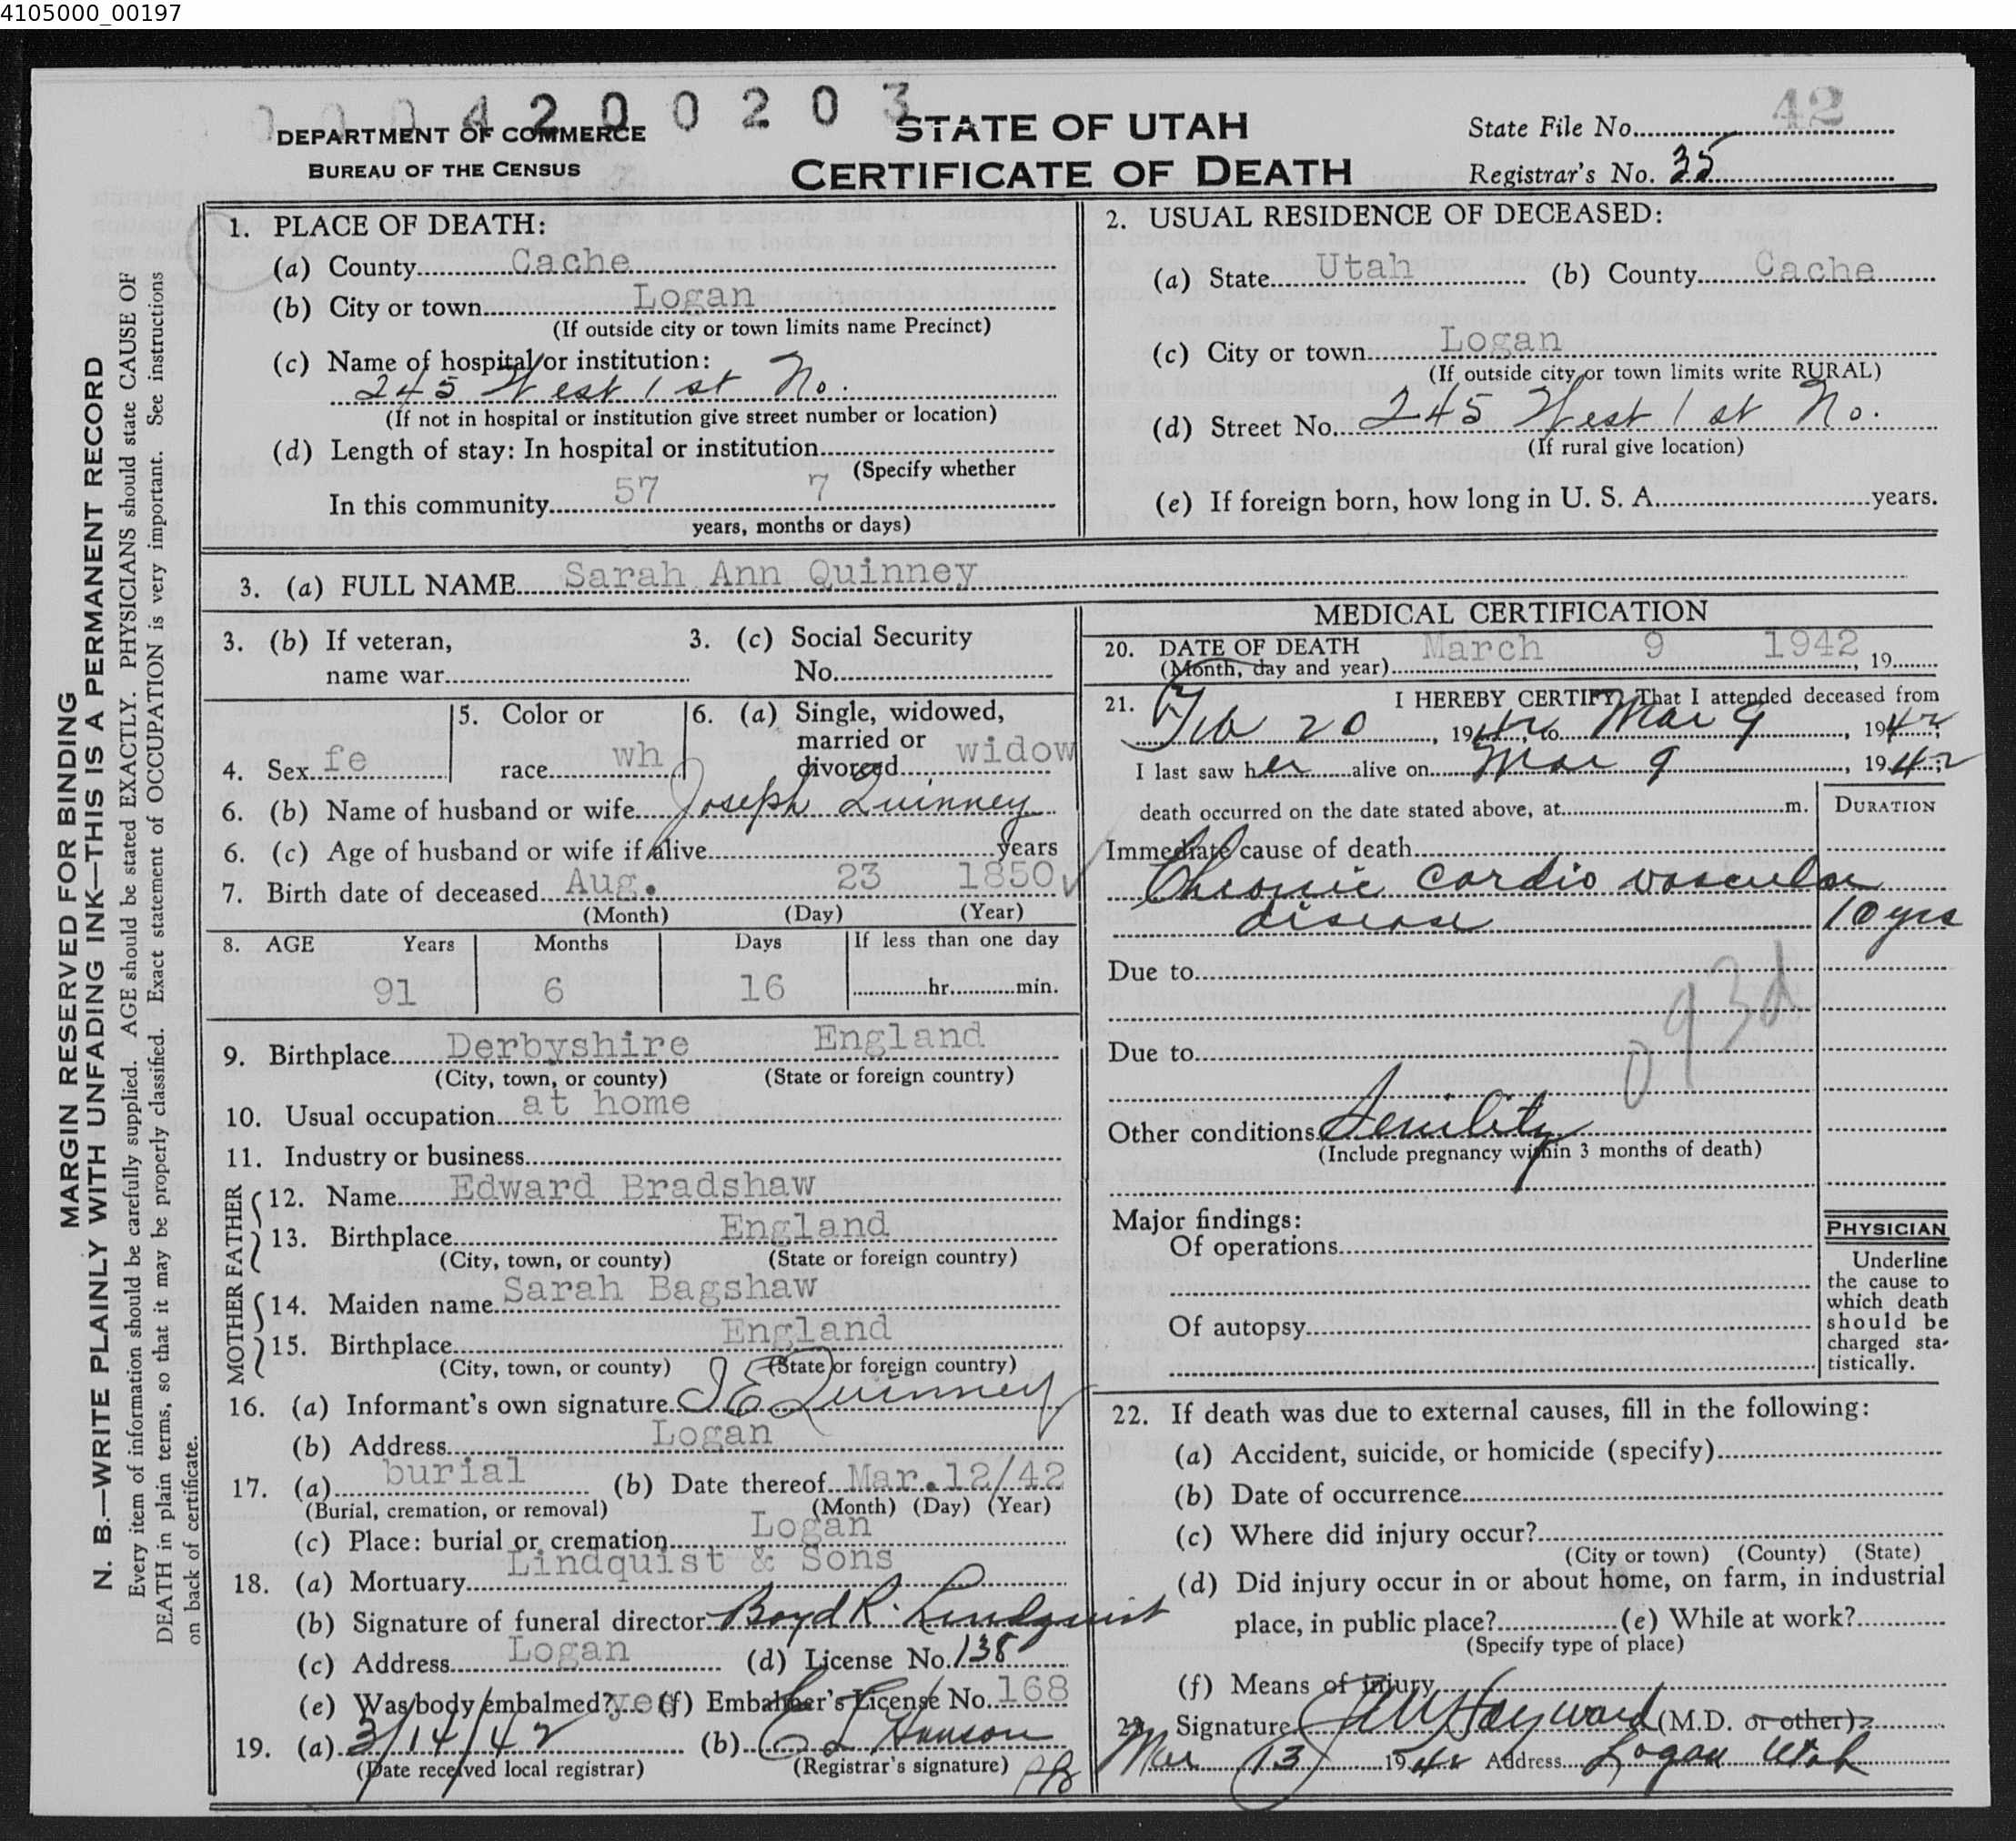 4105000_00197
0 0 0 4 2 0 0 2 0 3
DEPARTMENT OF COMMERCE
BUREAU OF THE CENSUS
STATE OF UTAH
CERTIFICATE OF DEATH
State File No. 42
Registrar's No. 35
MARGIN RESERVED FOR BINDING
N. B.—WRITE PLAINLY WITH UNFADING INK—THIS IS A PERMANENT RECORD
Every item of information should be carefully supplied. AGE should be stated EXACTLY. PHYSICIANS should state CAUSE OF
DEATH in plain terms, so that it may be properly classified. Exact statement of OCCUPATION is very important. See instructions
on back of certificate.
1. PLACE OF DEATH:
(a) County Cache
(b) City or town Logan
(If outside city or town limits name Precinct)
(c) Name of hospital or institution:
245 West 1st No.
(If not in hospital or institution give street number or location)
(d) Length of stay: In hospital or institution
(Specify whether
In this community 57 7
years, months or days)
2. USUAL RESIDENCE OF DECEASED:
(a) State Utah (b) County Cache
(c) City or town Logan
(If outside city or town limits write RURAL)
(d) Street No. 245 West 1st No.
(If rural give location)
(e) If foreign born, how long in U. S. A. years.
3. (a) FULL NAME Sarah Ann Quinney
3. (b) If veteran, 3. (c) Social Security
name war No.
4. Sex fe 5. Color or race wh 6. (a) Single, widowed, married or divorced widow
6. (b) Name of husband or wife Joseph Quinney
6. (c) Age of husband or wife if alive years
7. Birth date of deceased Aug. 23 1850
(Month) (Day) (Year)
8. AGE Years Months Days If less than one day
91 6 16 hr. min.
9. Birthplace Derbyshire England
(City, town, or county) (State or foreign country)
10. Usual occupation at home
11. Industry or business
FATHER
12. Name Edward Bradshaw
13. Birthplace England
(City, town, or county) (State or foreign country)
MOTHER
14. Maiden name Sarah Bagshaw
15. Birthplace England
(City, town, or county) (State or foreign country)
16. (a) Informant's own signature J E Quinney
(b) Address Logan
17. (a) burial (b) Date thereof Mar. 12/42
(Burial, cremation, or removal) (Month) (Day) (Year)
(c) Place: burial or cremation Logan
18. (a) Mortuary Lindquist & Sons
(b) Signature of funeral director Boyd R. Lindquist
(c) Address Logan (d) License No. 138
(e) Was body embalmed? yes (f) Embalmer's License No. 168
19. (a) 3/14/42 (b) C L Hanson
(Date received local registrar) (Registrar's signature)
MEDICAL CERTIFICATION
20. DATE OF DEATH March 9 1942
(Month, day and year) , 19
21. I HEREBY CERTIFY, That I attended deceased from
Feb 20, 1942, to Mar 9, 1942;
I last saw her alive on Mar 9, 1942;
death occurred on the date stated above, at m. DURATION
Immediate cause of death
Chronic cardio vascular
disease 10 yrs
Due to
93d
Due to
Other conditions Senility
(Include pregnancy within 3 months of death)
Major findings:
Of operations
Of autopsy
PHYSICIAN
Underline
the cause to
which death
should be
charged sta-
tistically.
22. If death was due to external causes, fill in the following:
(a) Accident, suicide, or homicide (specify)
(b) Date of occurrence
(c) Where did injury occur?
(City or town) (County) (State)
(d) Did injury occur in or about home, on farm, in industrial
place, in public place? (e) While at work?
(Specify type of place)
(f) Means of injury
23. Signature Hayward (M.D. or other)
Mar 13 1942 Address Logan Utah